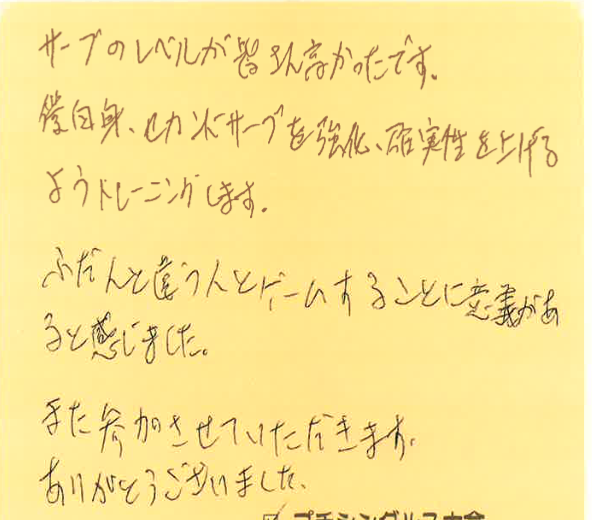 サーブのレベルが皆さん高かったです。
僕自身、セカンドサーブを強化、確実性を上げる
ようトレーニングします。
ふだんと違う人とゲームすることに意義があ
ると感じました。
また参加させていただきます。
ありがとうございました。
プチシングルス大会